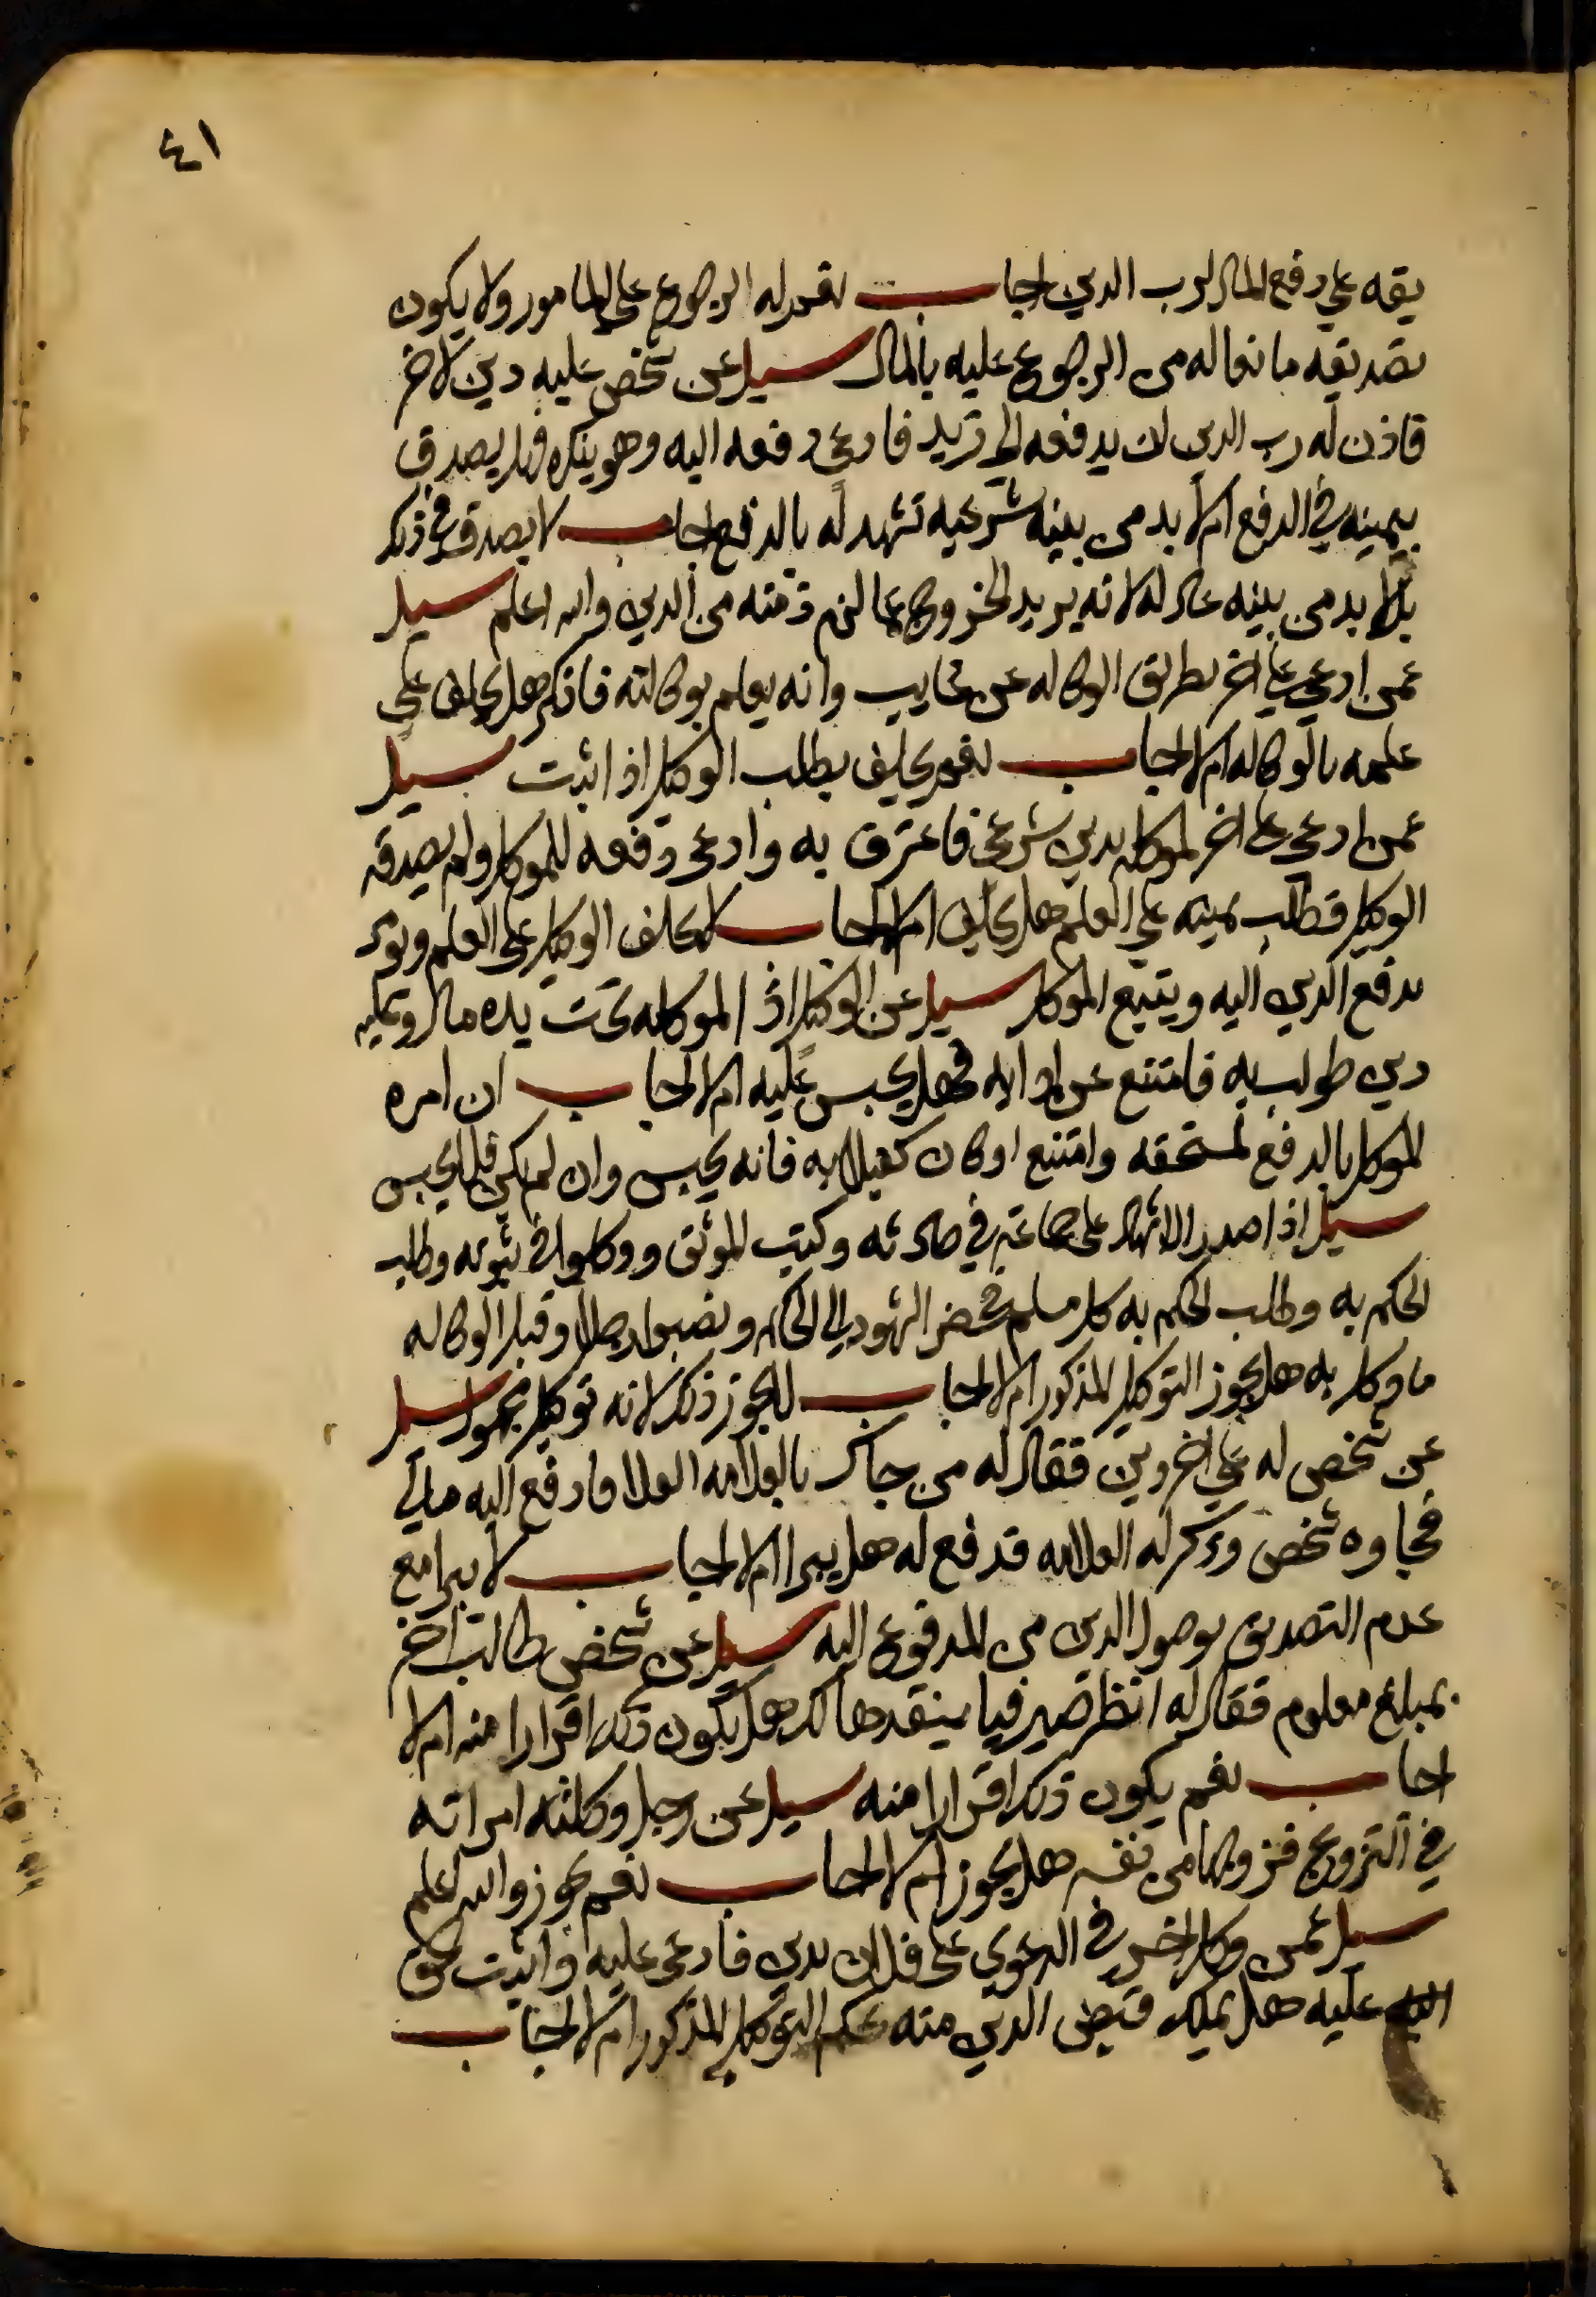 ٤١
يقه على دفع المال لرب الدين اجاب نعم له الرجوع على المامور ولا يكون
تصديقه مانعا له من الرجوع عليه بالمال سيل عن شخص عليه دين لاخر
فاذن له رب الدين ان يدفعه الى زيد فادعى دفعه اليه وهو ينكره فهل يصدق
بيمينه في الدفع ام لا بد من بينه شرعيه تشهد له بالدفع اجاب لا يصدق في ذلك
بل لا بد من بينه عادله لانه يريد الخروج عما لزم ذمته من الدين والله اعلم سيل
عمن ادعى على اخر بطريق الوكاله عن غايب وانه يعلم بوكالته فانكر هل يحلف على
علمه بالوكاله ام لا اجاب نعم يحلف بطلب الوكيل اذا اثبت سيل
عمن ادعى على اخر لموكله بدين شرعي فاعترف به وادعى دفعه للموكل ولم يصدقه
الوكيل فطلب يمينه على العلم هل يحلف ام لا اجاب لا يحلف الوكيل على العلم ويومر
بدفع الدين اليه ويتبع الموكل سيل عن الوكيل اذا لموكله تحت يده مال وعليه
دين طولب به فامتنع عن ادايه فهل يحبس عليه ام لا اجاب ان امره
الموكل بالدفع لمستحقه وامتنع او كان كفيلا به فانه يحبس وان لم يكن فلا يحبس
سيل اذا صدر الاشهاد على جماعة في حادثه وكتب الموثق ووكلوا في ثبوته وطلب
الحكم به وطلب الحكم به كل مسلم فحضر الشهود الى الحاكم ونصبوا رجلا وقبل الوكاله
ما وكل به هل يجوز التوكيل المذكور ام لا اجاب لا يجوز ذلك لانه توكيل مجهول سيل
عن شخص له على اخر دين فقال له من جاك بالعلامه الفلانيه فادفع اليه مالي
فجاوه شخص وذكر له العلامه فدفع له هل يبرا ام لا اجاب لا يبرا مع
عدم التصديق بوصول الدين من المدفوع اليه سيل عن شخص طالب اخر
بمبلغ معلوم فقال له انظر صيرفيا ينقدها لك هل يكون ذلك اقرارا منه ام لا
اجاب نعم يكون ذلك اقرارا منه سيل عن رجل وكلته امراته
في التزويج فزوجها من نفسه هل يجوز ام لا اجاب نعم يجوز والله اعلم
سيل عمن وكل اخر في الدعوي على فلان بدين فادعى عليه واثبت
عليه هل يملك قبض الدين منه بحكم التوكيل المذكور ام لا اجاب